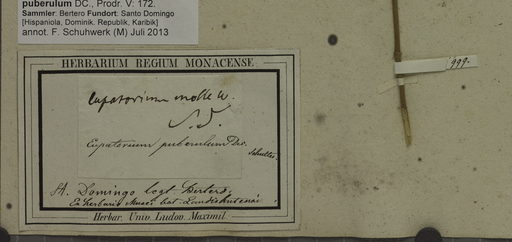 puberulum DC., Prodr. V: 172.
Sammler: Bertero Fundort: Santo Domingo
[Hispaniola, Dominik. Republik, Karibik]
annot. F. Schuhwerk (M) Juli 2013
HERBARIUM REGIUM MONACENSE
Eupatorium molle
S. D.
Eupatorium puberulum Dec.
Schultes.
St. Domingo legt Bertero,
Ex herbario Musei bot. Landishutenai
Herbar. Univ. Ludov. Maximil.
999.